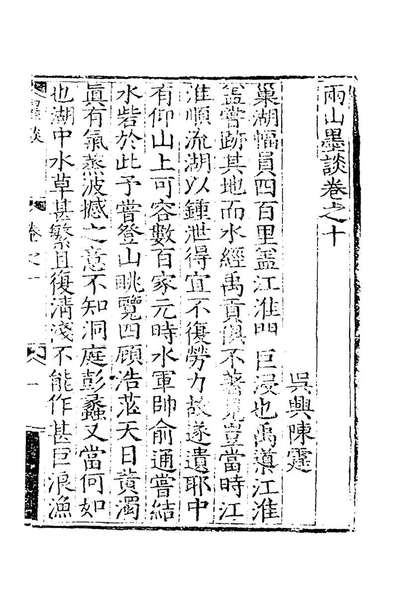 兩山墨談卷之十
吳興陳霆
巢湖幅員四百里蓋江淮間巨浸也禹導江淮
蓋嘗跡其地而水經禹貢俱不著豈當時江
淮順流湖以鍾泄得宜不復勞力故遂遺耶中
有仰山上可容數百家元時水軍帥俞通嘗結
水砦於此予嘗登山眺覽四顧浩茫天日黃濁
眞有氣蒸波撼之意不知洞庭彭蠡又當何如
也湖中水草甚繁且復淸淺不能作甚巨浪漁
墨談
卷之十
一